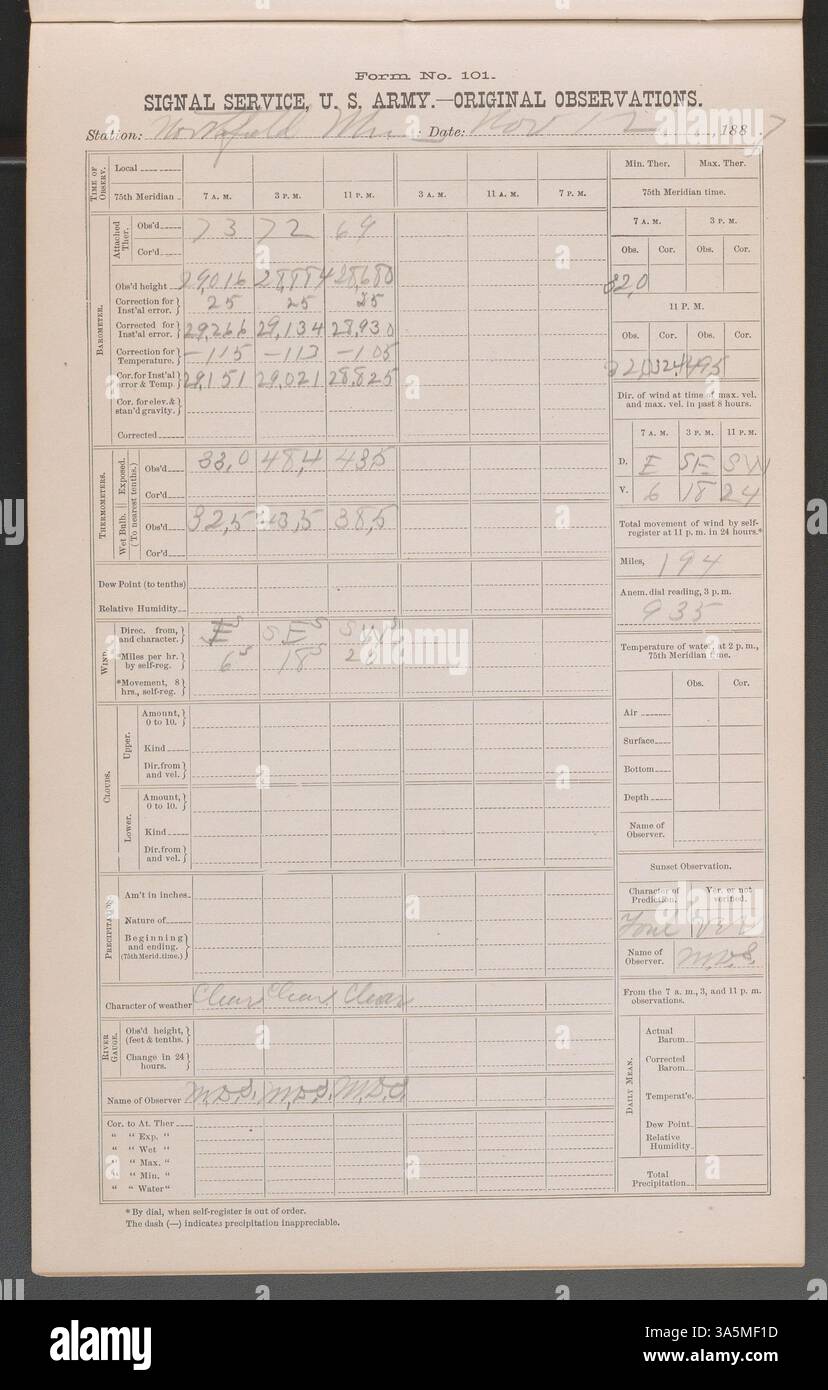 Form No. 101.
SIGNAL SERVICE, U. S. ARMY.—ORIGINAL OBSERVATIONS.
Station: Northfield Minn Date: Nov 12, 1887
TIME OF OBSERV.
Local
75th Meridian 7 A. M. 3 P. M. 11 P. M. 3 A. M. 11 A. M. 7 P. M.
BAROMETER.
Attached Ther.
Obs'd 73 72 69
Cor'd
Obs'd height 29,016 28,884 28,680
Correction for Inst'al error. 25 25 25
Corrected for Inst'al error. 29,266 29,134 28,930
Correction for Temperature. —115 —113 —105
Cor. for Inst'al error & Temp. 29,151 29,021 28,825
Cor. for elev. & stan'd gravity.
Corrected
THERMOMETERS.
(To nearest tenths.)
Exposed.
Obs'd 33,0 48,4 43,5
Cor'd
Wet Bulb.
Obs'd 32,5 43,5 38,5
Cor'd
Dew Point (to tenths)
Relative Humidity
WIND.
Direc. from, and character. E S SE S SW S
*Miles per hr. by self-reg. 6 18
*Movement, 8 hrs., self-reg.
CLOUDS.
Upper.
Amount, 0 to 10.
Kind
Dir. from and vel.
Lower.
Amount, 0 to 10.
Kind
Dir. from and vel.
PRECIPITATION.
Am't in inches.
Nature of
Beginning and ending. (75th Merid. time.)
Character of weather Clear Clear Clear
RIVER GAUGE.
Obs'd height, (feet & tenths.)
Change in 24 hours.
Name of Observer M.D.S. M.D.S. M.D.S.
Cor. to At. Ther
" " Exp. "
" " Wet "
" " Max. "
" " Min. "
" " Water "
* By dial, when self-register is out of order.
The dash (—) indicates precipitation inappreciable.
Min. Ther. Max. Ther.
75th Meridian time.
7 A. M. 3 P. M.
Obs. Cor. Obs. Cor.
32,0
11 P. M.
Obs. Cor. Obs. Cor.
49,5
Dir. of wind at time of max. vel. and max. vel. in past 8 hours.
7 A. M. 3 P. M. 11 P. M.
D. E SE SW
V. 6 18 24
Total movement of wind by self-register at 11 p. m. in 24 hours.*
Miles, 194
Anem. dial reading, 3 p. m.
935
Temperature of water, at 2 p. m., 75th Meridian time.
Obs. Cor.
Air
Surface
Bottom
Depth
Name of Observer.
Sunset Observation.
Character of Prediction. Ver. or not verified.
Name of Observer. M.D.S.
From the 7 a. m., 3, and 11 p. m. observations.
DAILY MEAN.
Actual Barom
Corrected Barom
Temperat'e.
Dew Point
Relative Humidity
Total Precipitation
alamy
Image ID: 3A5MF1D
www.alamy.com